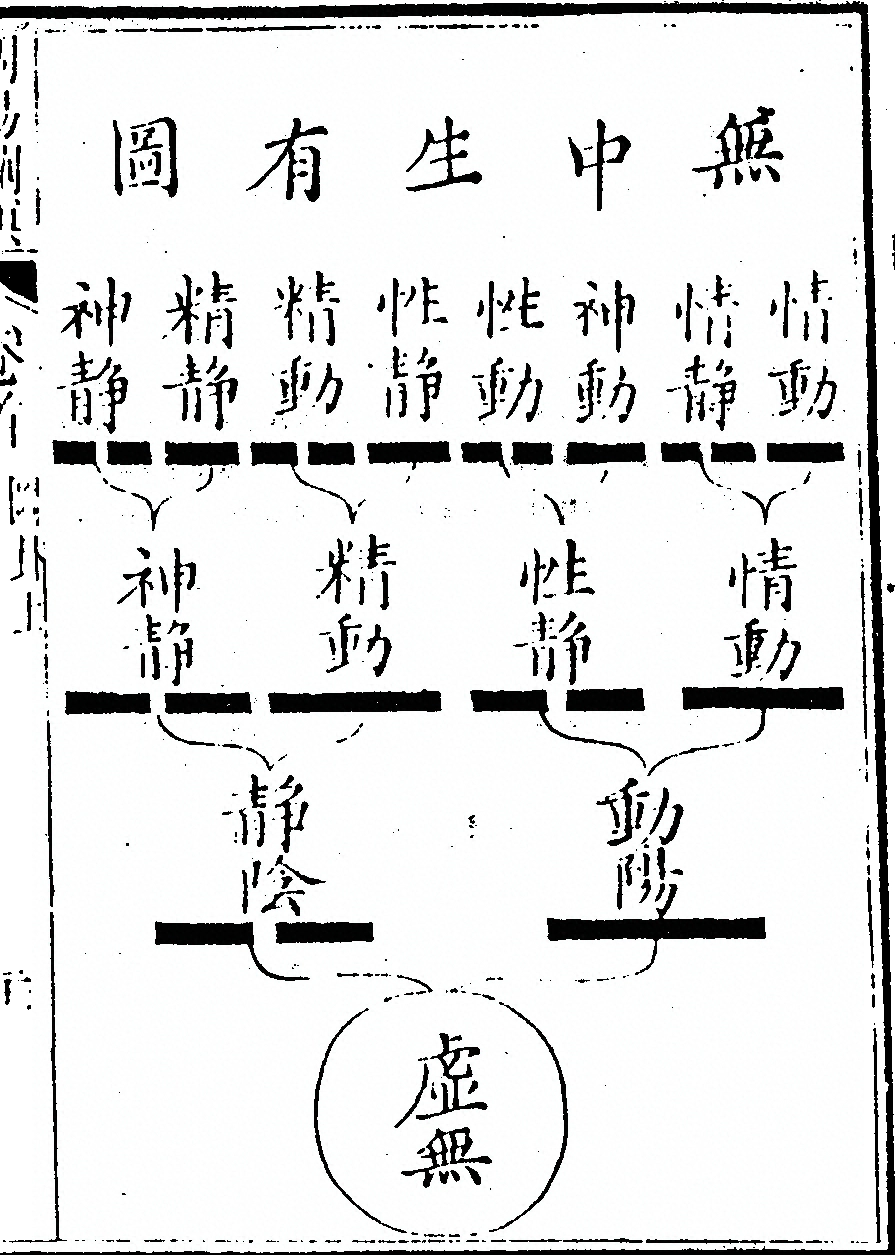 無中生有圖
情動 情靜 神動 性動 性靜 精動 精靜 神靜
情動 性靜 精動 神靜
動陽 靜陰
虛無